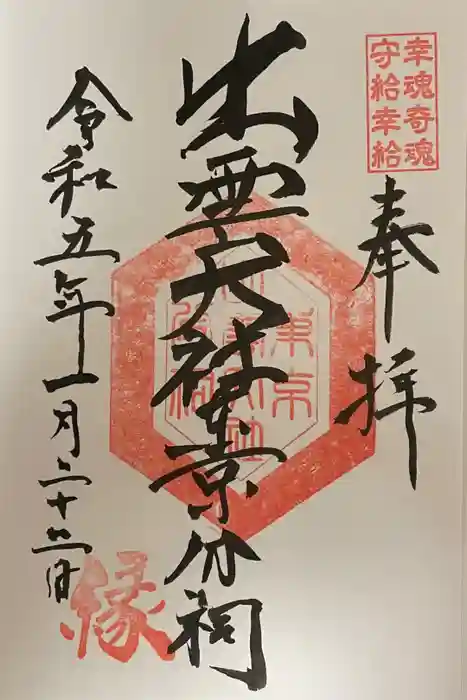 幸魂奇魂
守給幸給
奉拝
出雲大社東京分祠
令和五年十一月二十三日
縁